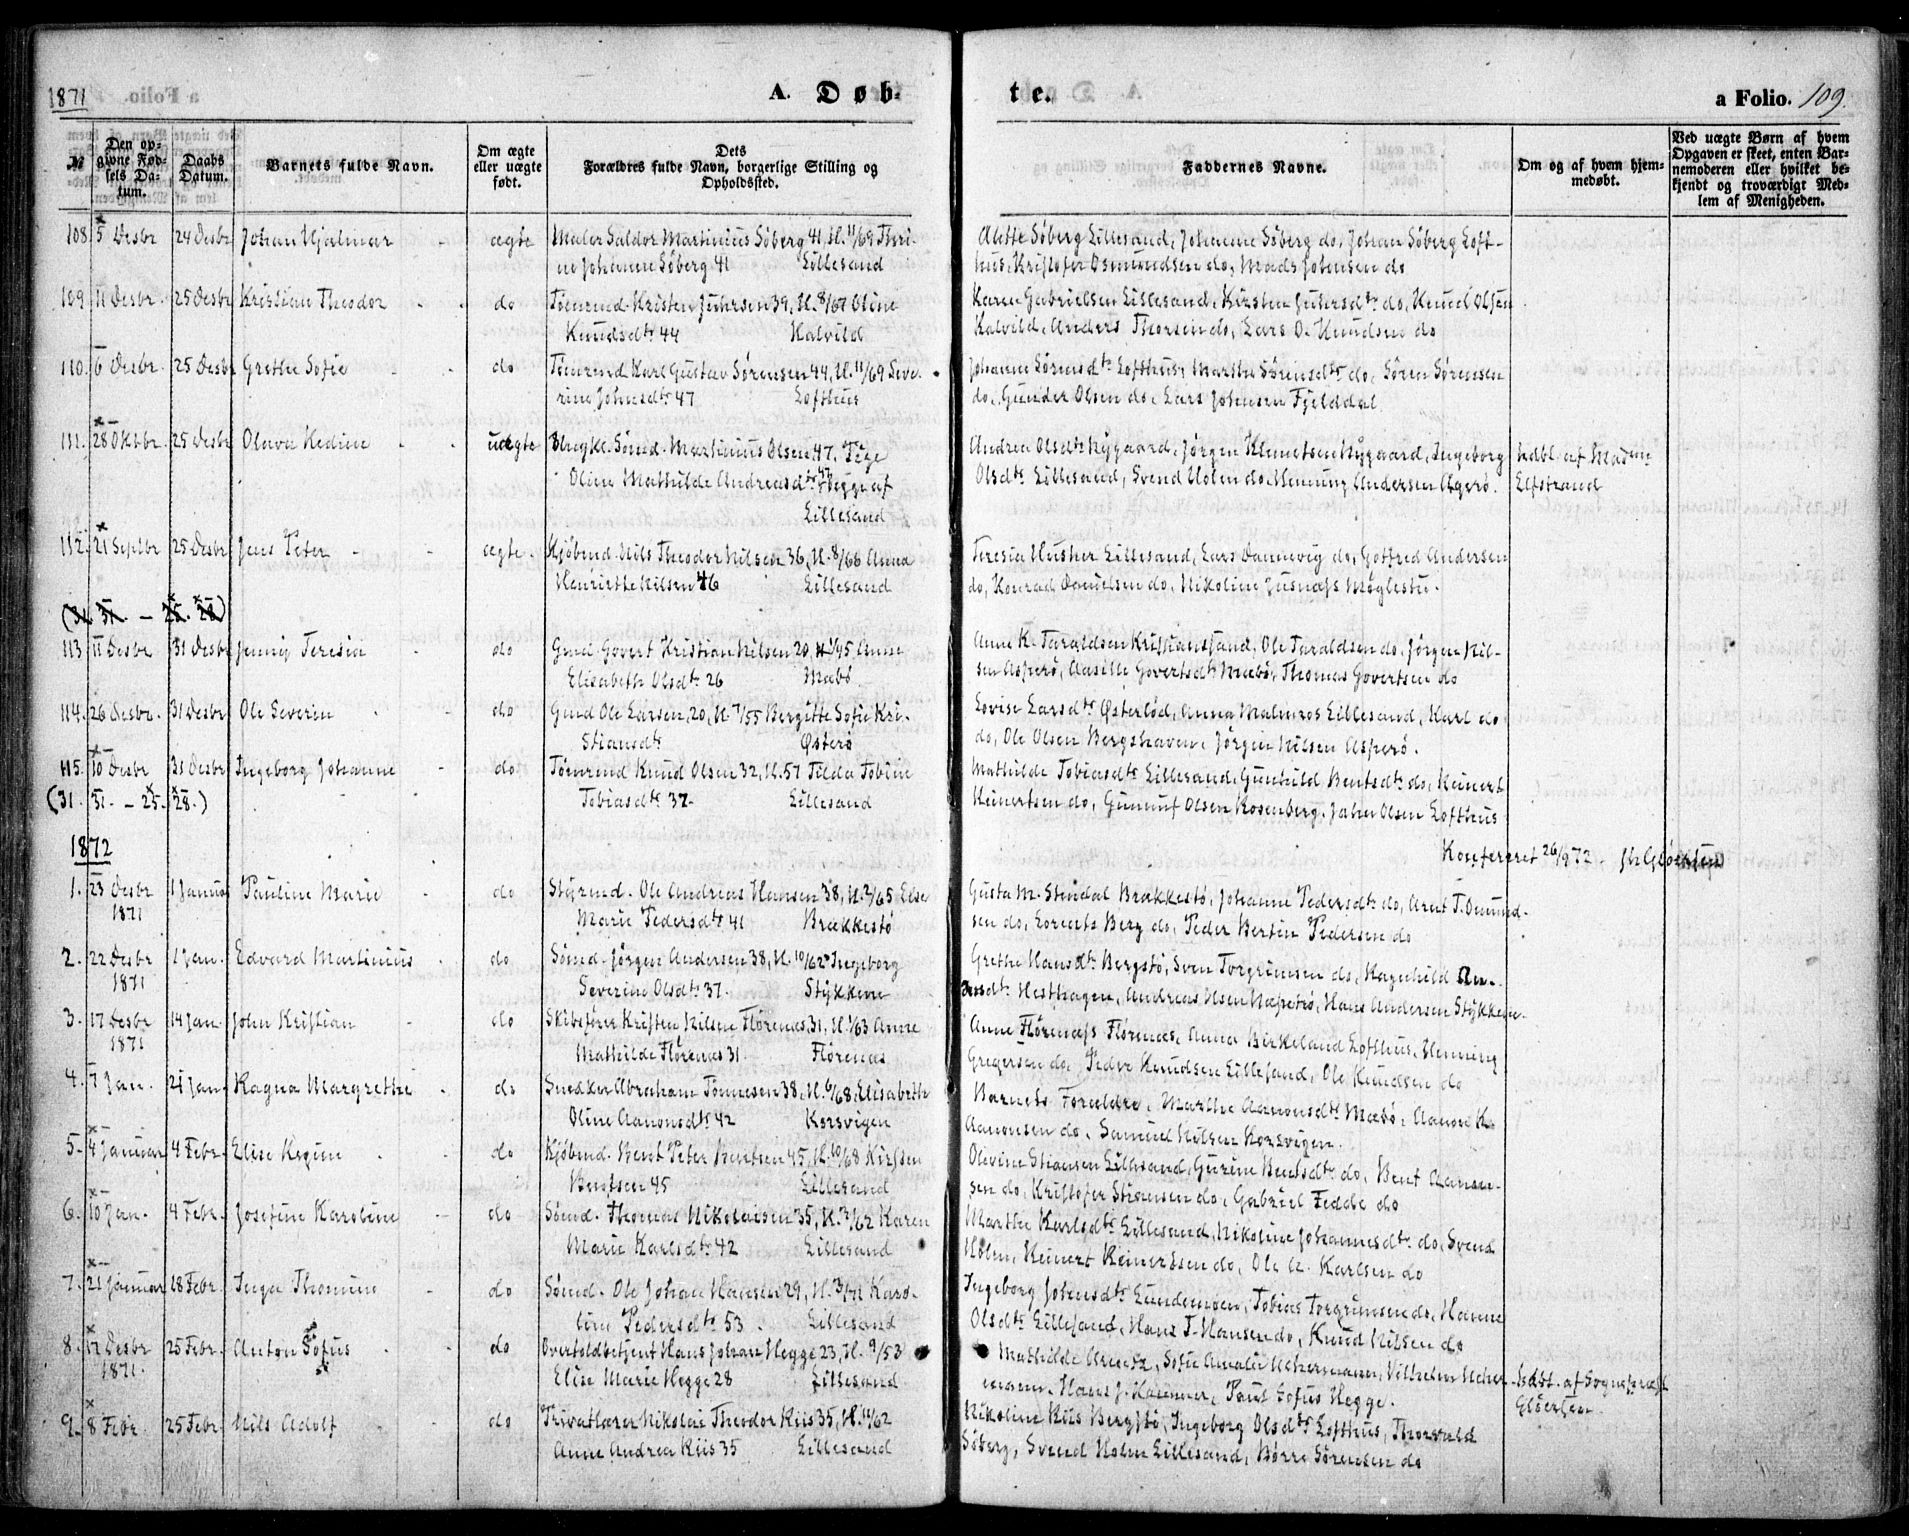 1871
A. Døb-
te.
a Folio. 109.
№
Den opgivne Fødsels Datum.
Daabs Datum.
Barnets fulde Navn.
Om ægte eller uægte født.
Dets Forældres fulde Navn, borgerlige Stilling og Opholdssted.
Faddernes Navne.
Om og af hvem hjemmedøbt.
Ved uægte Børn af hvem Opgaven er skeet, enten Barnemoderen eller hvilket bekjendt og troværdigt Medlem af Menigheden.
108. 5 Desbr 24 Desbr Johan Hjalmar - ægte Maler Saldor Martinius Søberg 41, N. 11/69 Thri-
ne Johanne Søberg 41 Lillesand
Alette Søberg Lillesand, Johanne Søberg do, Johan Søberg Loft-
hus, Kristofer Osmundsen do, Mads Johnsen do
109. 11 Desbr 25 Desbr Kristian Theodor - do Tømrmd. Kristen 39, N. 8/67 Oline
Knudsdtr 44 Kalvild
Karen Gabrielsen Lillesand, Kirsten do, Knud Olsen
Kalvild, Anders Thorsen do, Lars O. Knudsen do
110. 6 Desbr. 25 Desbr Grethe Sofie do Tømrmd Karl Gustav Sørensen 44, N. 11/69 Seve-
rine Johnsdtr 47 Lofthus
Johanne Sørensdtr Lofthus, Marthe Sørensdtr do, Søren Sørensen
do, Gunder Olsen do, Lars Johnsen Fjelddal
111. 28 Oktbr. 25 Desbr Olava Hedine - uægte Ungkl. Sømd. Martinius Olsen 47, Pige
Oline Mathilde Andreasdtr 47 Begge af
Lillesand
Andrea Olsdtr Nygaard, Jørgen Klemetsen Nygaard, Ingeborg
Olsdtr Lillesand, Svend Holm do, Henning Andersen Agerø.
hdbt. af Madm
Elfstrand
112. 21 Septbr 25 Desbr Jens Peter - ægte. Kjøbmd. Nils Theodor Nilsen 36, N. 8/66 Anna
Henriette Nilsen 46 Lillesand
Teresia Husher Lillesand, Lars Dannevig do, Gotfred Andersen
do, Konrad Danielsen do, Nikoline Møglestu.
(31. 31. - 25. 28.)
113 11 Desbr 31 Desbr Jenny Teresia - do Gmd. Govert Kristian Nilsen 20, N 1/45 Anne
Elisabeth Olsdtr 26 Mæbø
Anne K. Taraldsen Kristiansand, Ole Taraldsen do, Jørgen Nil-
sen Asperø, Aasille Govertsdtr Mæbø, Thomas Govertsen do
114. 26 Desbr. 31 Desbr Ole Severin - do Gmd Ole Larsen, 20, N. 7/55 Bergitte Sofie Kri-
stiansdtr Østerø
Lovise Larsdtr Østerlød, Anna Malmros Lillesand, Karl do
do, Ole Olsen Bergshaven, Jørgen Nilsen Asperø.
115. 10 Desbr 31 Desbr Ingeborg Johanne - do Tømrmd Knud Olsen 32, N. 57 Tilda Tobine
Tobiasdtr 37. Lillesand
Mathilde Tobiasdtr Lillesand, Gunhild Bentsdtr do, Reinert
Reinertsen do, Gunnuf Olsen Rosenberg, Olsen Lofthus
(31. 31. - 25. 28.)
1872
Konfereret 26/9 72.
1. 23 Desbr 1871 1 Januar Pauline Marie do Styrmd. Ole Andreas Hansen 38, N. 2/65 Else
Marie Pedersdtr 41 Brækkestø
Gusta M. Stendal Brækkestø, Johanne Pedersdtr do, Arnt T. Omund-
sen do, Lorents Berg do, Peder Bertin Pedersen do
2. 22 Desbr 1871 1 Jan. Edvard Martinius do Sømd. Jørgen Andersen 38, N. 10/62 Ingeborg
Severine Olsdtr 37. Stykkene
Grethe Hansdtr Bergstø, Sven Torgrimsen do, Ragnhild An-
dersdtr Hesthagen, Andreas Olsen Næperø, Hans Andersen Stykkene
3. 17 Desbr 1871 14 Jan. John Kristian - do Skibsfører Kristen Nilsen Flørenæs 31, N. 1/63 Anne
Mathilde Flørenæs 31. Flørenæs
Anne Flørenæs Flørenæs, Anna Birkeland Lofthus, Henning
Gregersen do, Peder Knudsen Lillesand, Ole Knudsen do
4. 7 Jan. 21 Jan. Ragna Margrethe - do Snedker Abraham Tønnesen 38, N. 6/68 Elisabeth
Oline Aanonsdtr 42 Korsvigen
Barnets Forældre, Marthe Aanonsdtr Mæbø, Aanon K.
Aanonsen do, Samuel Nilsen Korsvigen.
5. 4 Januar 4 Febr. Elise Regine - do Kjøbmd. Bent Peter Bentsen 45, N. 10/68 Kirsten
Bentsen 45 Lillesand
Olivine Stiansen Lillesand, Gurine Bentsdtr do, Bent Aanon-
sen do, Kristofer Stiansen do, Gabriel Fedde do
6. 10 Jan. 4 Febr. Josefine Karoline - do Sømd. Thomas Nikolaisen 35, N. 2/62 Karen
Marie Karlsdtr 42 Lillesand
Marthe Karlsdtr Lillesand, Nikoline Johannesdtr do, Svend
Holm, Reinert Reinertsen do, Ole A. Karlsen do
7. 21 Januar 18 Febr. Inga Thomine do Sømd. Ole Johan Hansen 29, N. 3/71 Karo-
line Pedersdtr 53. Lillesand
Ingeborg Johnsdtr Lundemoen, Tobias Torgrimsen do, Hanne
Olsdtr Lillesand, Hans T. Hansen do, Knud Nilsen do
8. 17 Desbr 1871. 25 Febr. Anton Sofus - do Overtoldbetjent Hans Johan Hegge 23, N. 9/53
Elise Marie Hegge 28 Lillesand
Mathilde Arntz, Sofie Amalie Ackermann, Vilhelm Acker-
mann, Hans J. Kammer, Paul Sofus Hegge.
hdbt. af Sognepræst
Gløersen
9. 8 Febr 25 Febr. Nils Adolf - do Privatlærer Nikolai Theodor Riis 35, N. 11/62
Anne Andrea Riis 35 Lillesand
Nikoline Riis Bergstø, Ingeborg Olsdtr Lofthus, Thorvald
Søberg, Svend Holm Lillesand, Børre Sørensen do